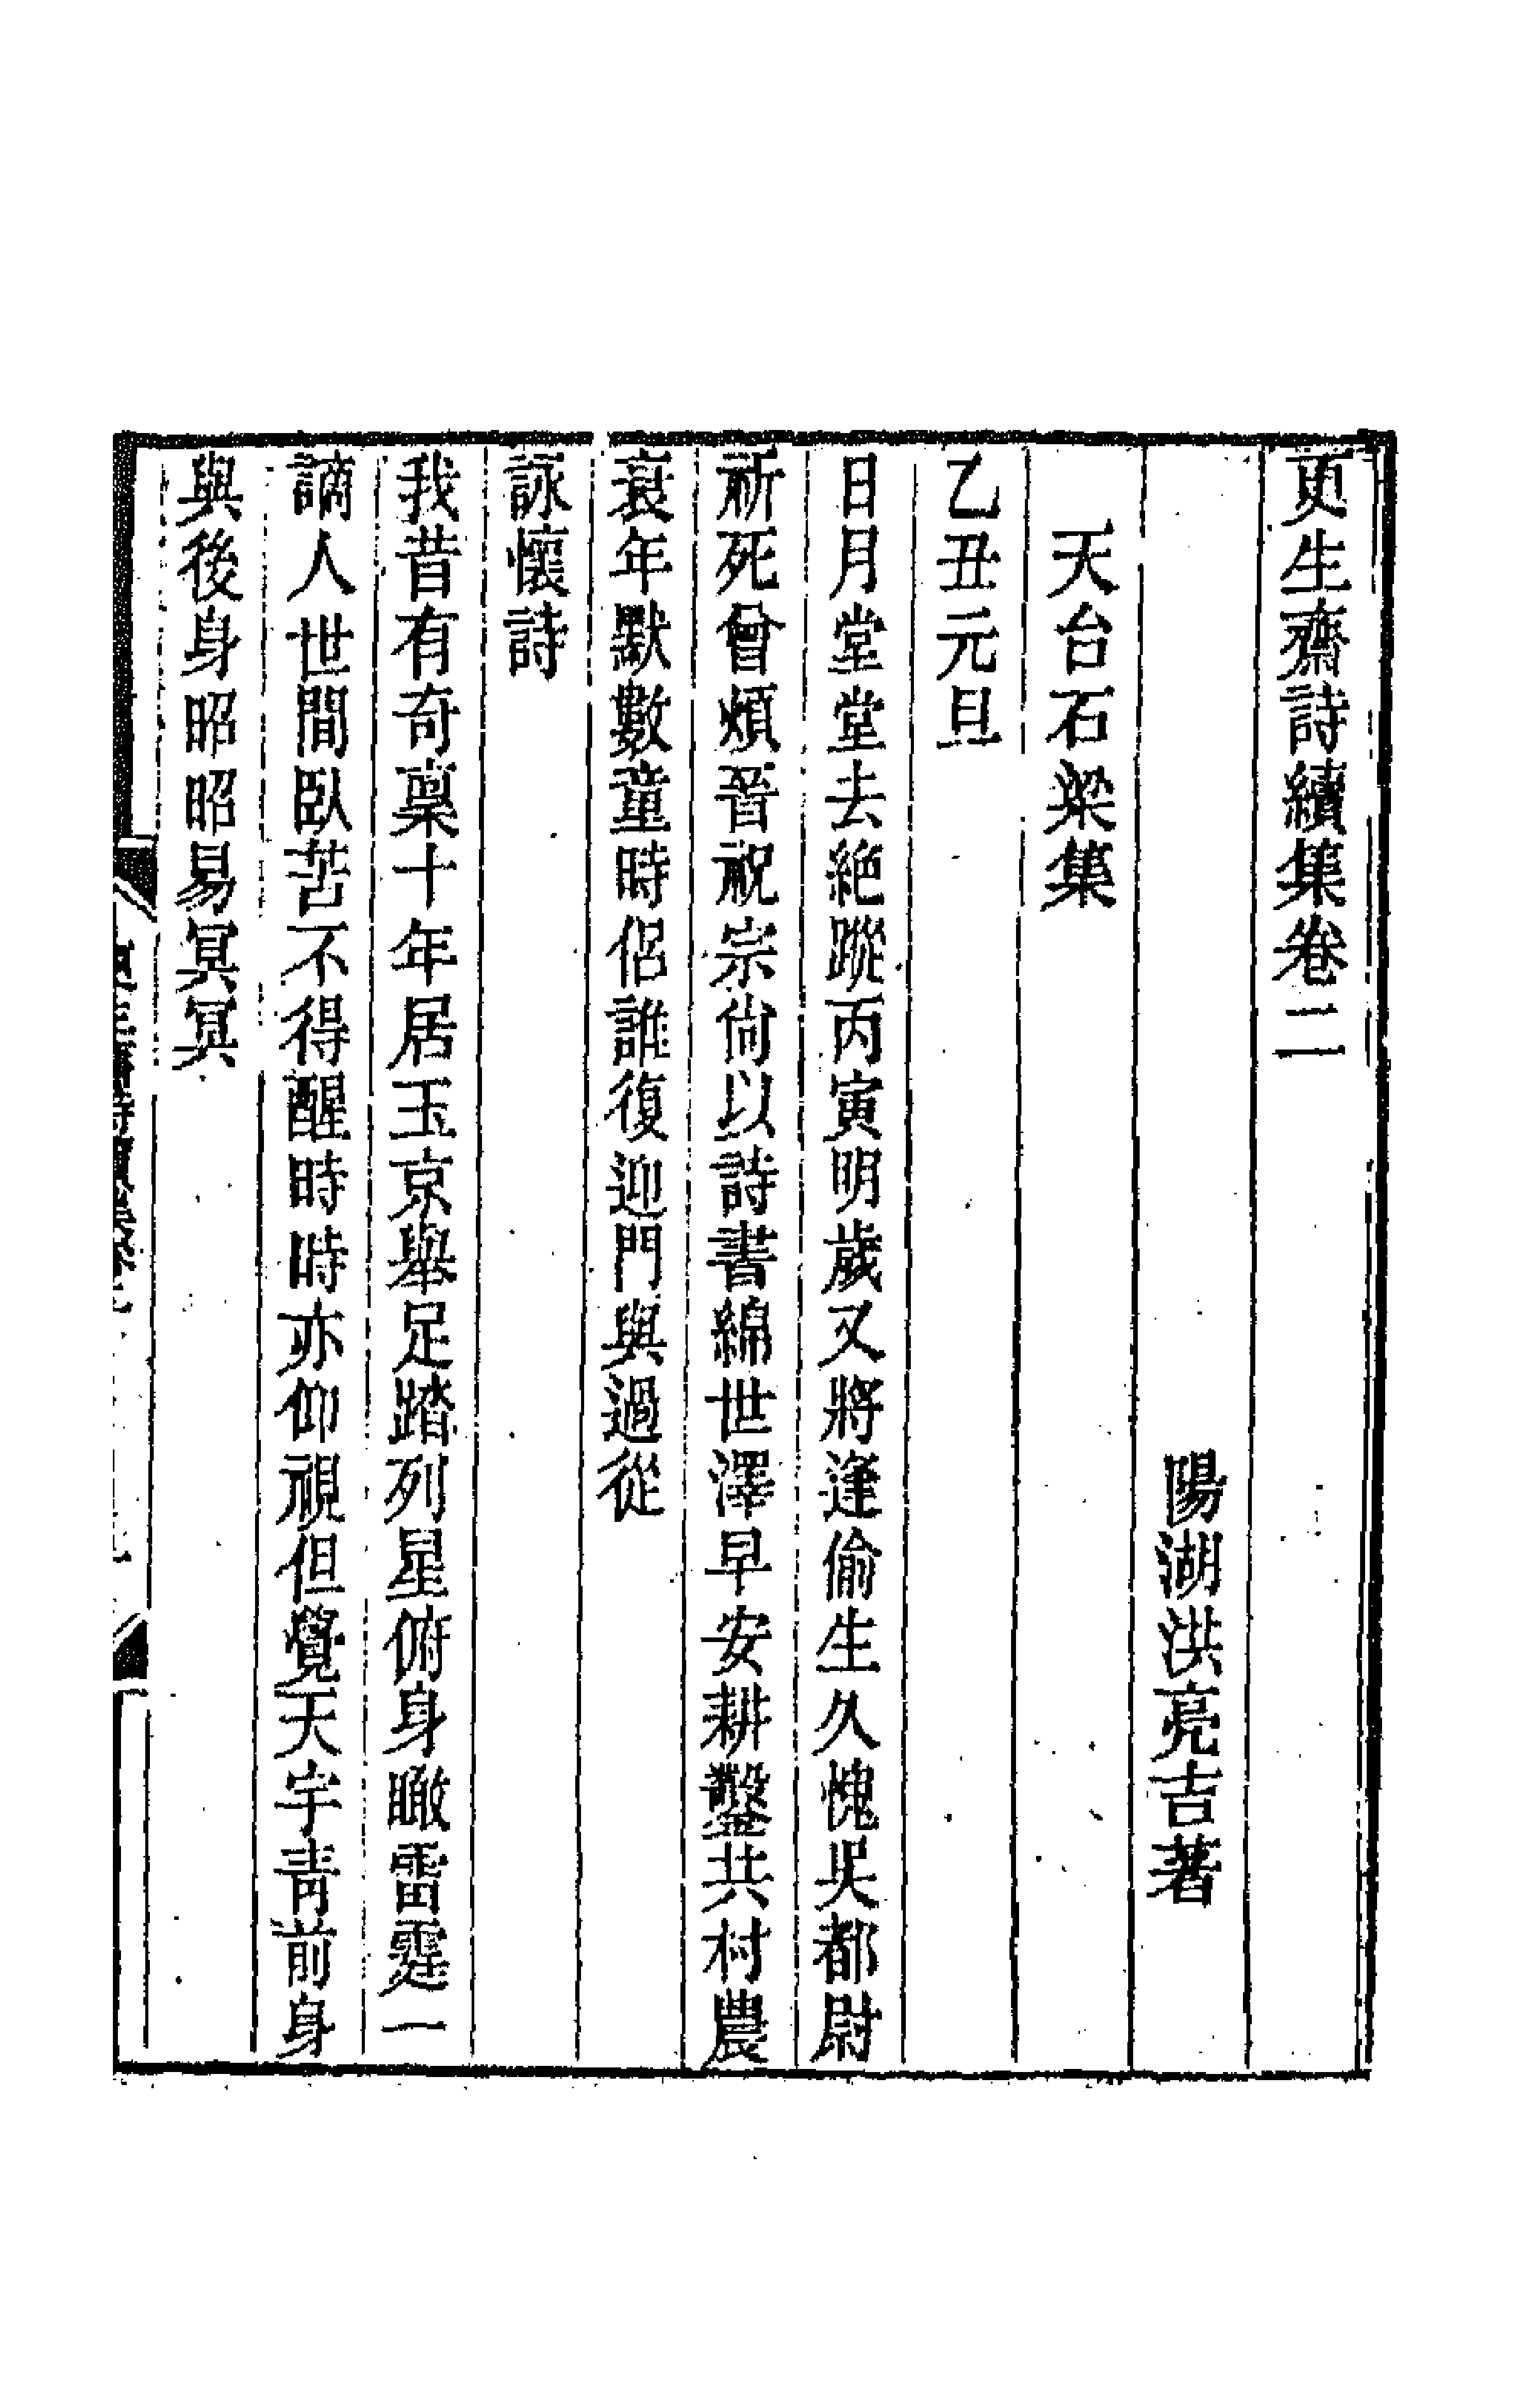 更生齋詩續集卷二
陽湖洪亮吉著
天台石梁集
乙丑元旦
日月堂堂去絶蹤丙寅明歲又將逢偷生久愧吳都尉
祈死曾煩晉祝宗尙以詩書綿世澤早安耕鑿共村農
衰年默數童時侶誰復迎門與過從
詠懷詩
我昔有奇稟十年居玉京舉足踏列星俯身瞰雷霆一
謫人世間臥苦不得醒時時亦仰視但覺天宇靑前身
與後身昭昭易冥冥